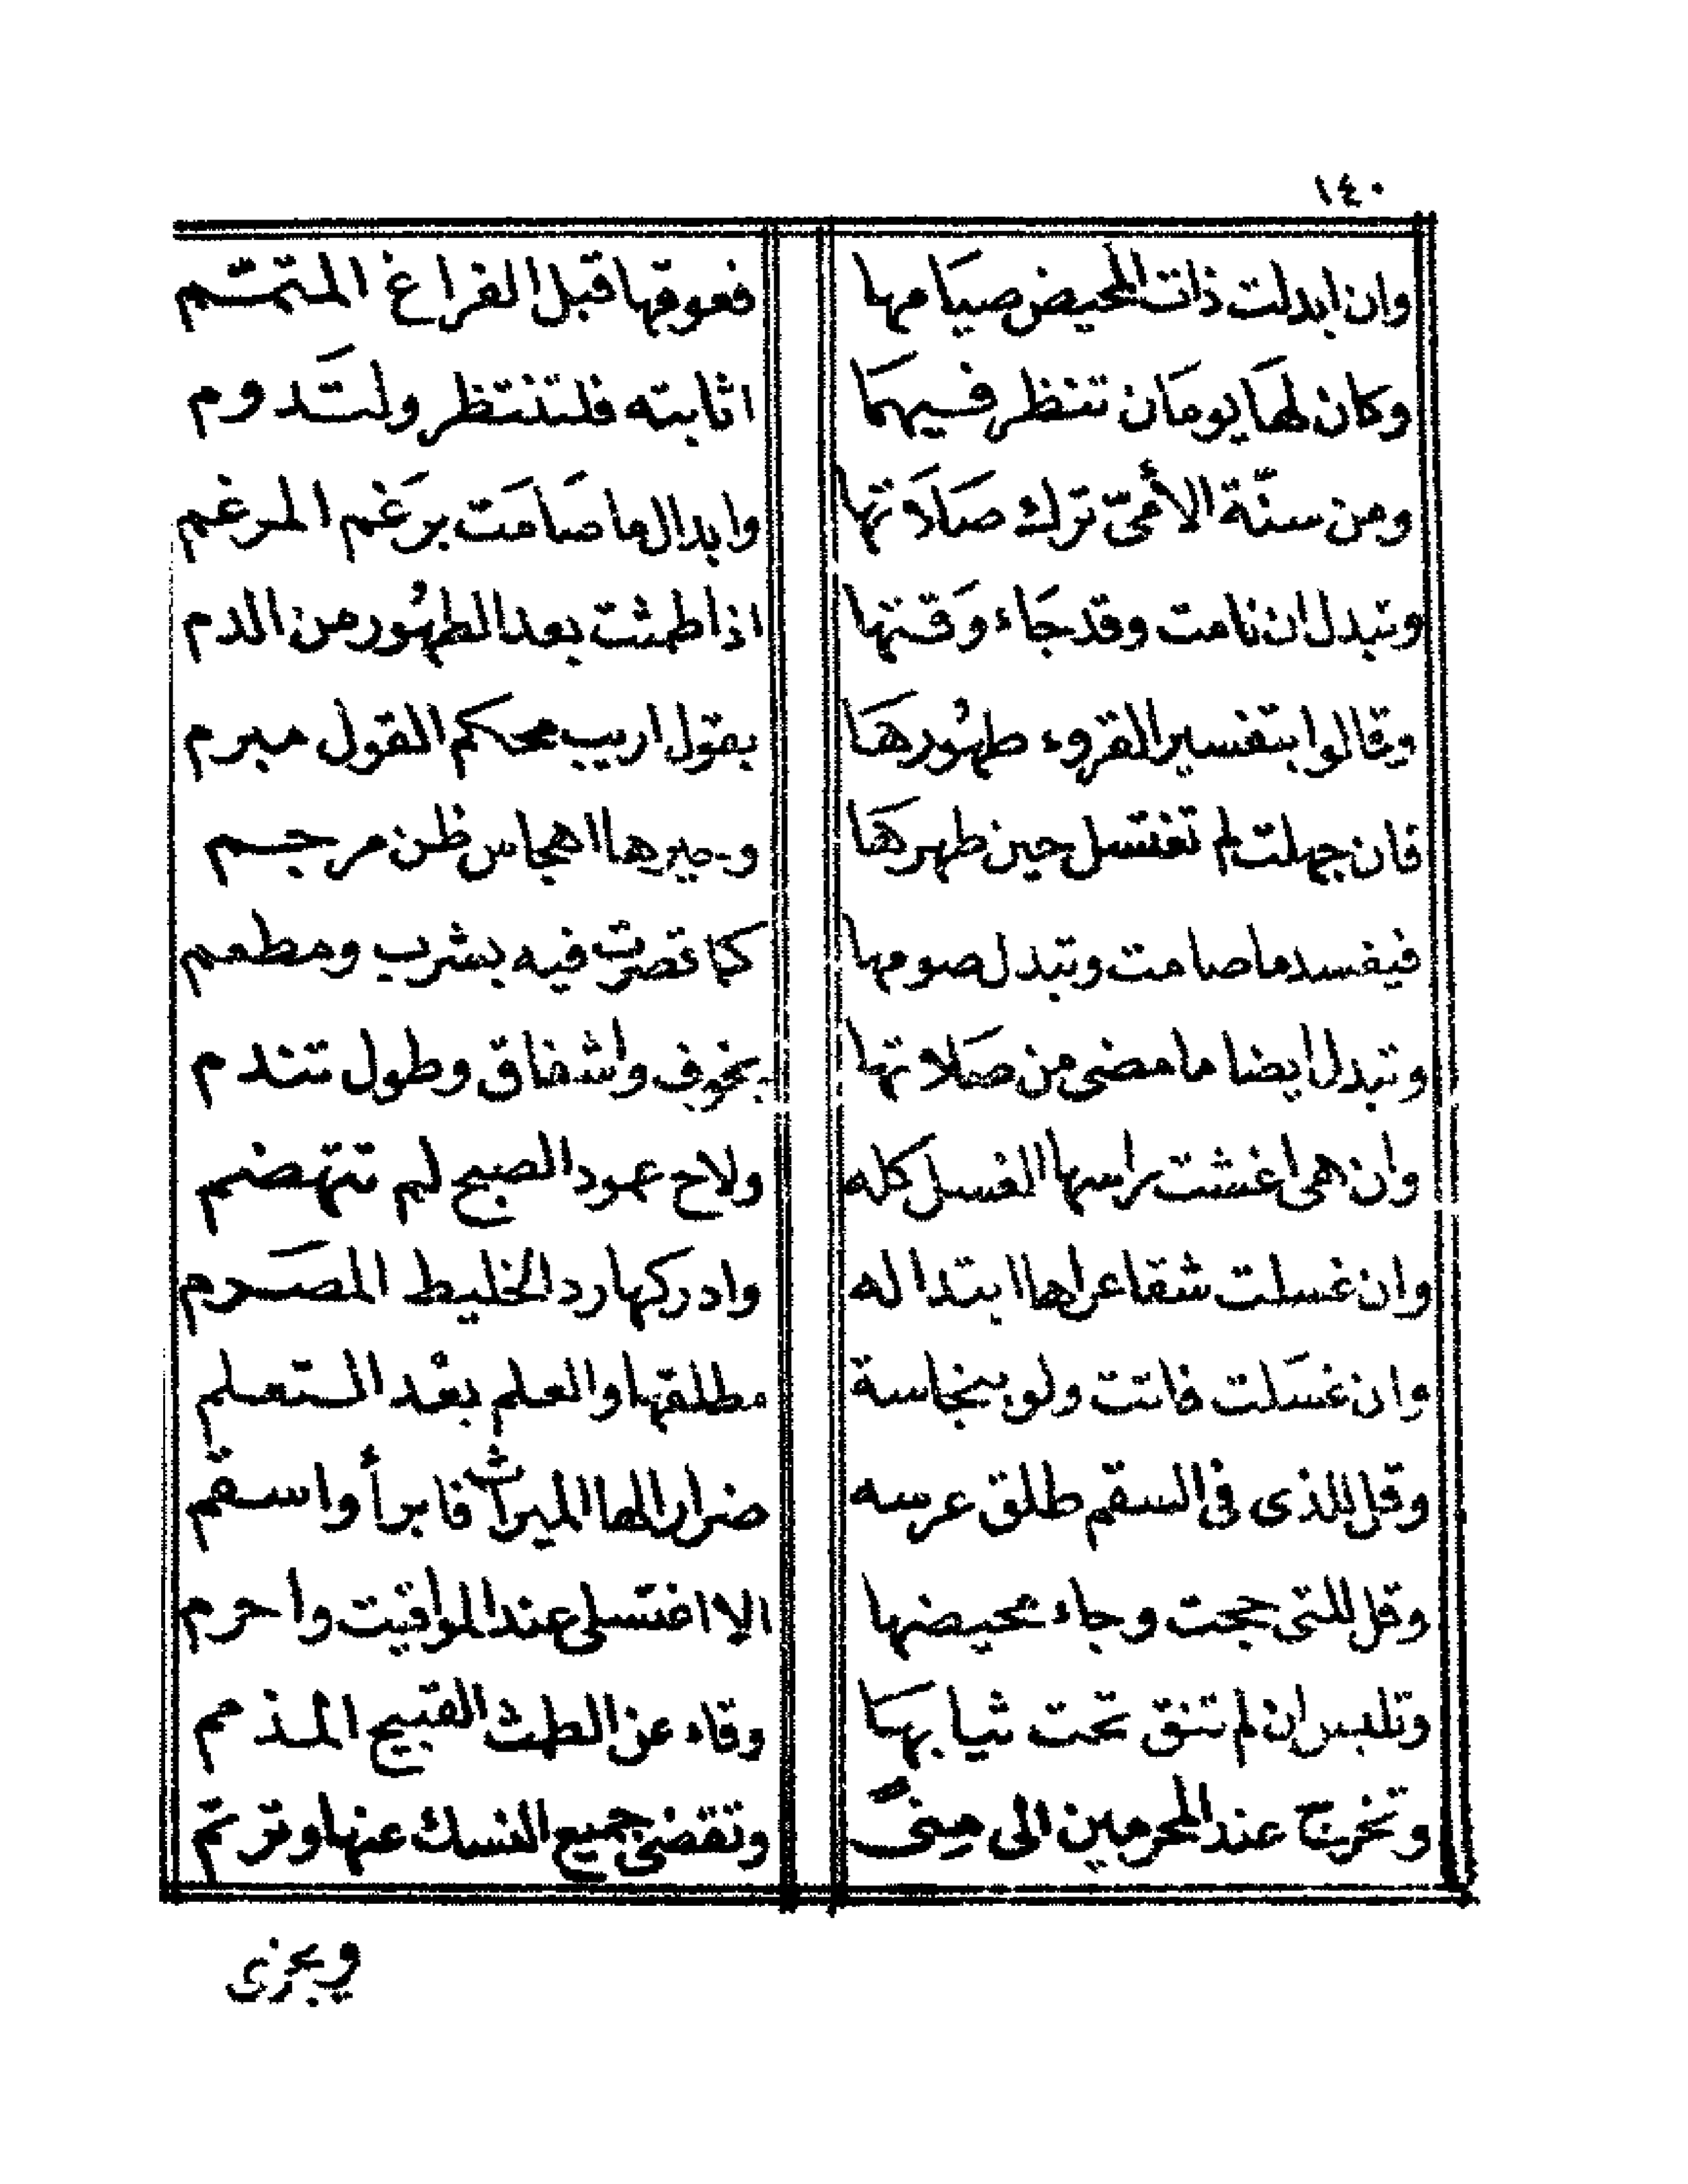 ١٤٠
وان ابدلت ذات المحيض صيامها فعوقها قبل الفراغ المتمتم
وكان لها يومان تنظر فيهما اثابته فلتنتظر ولتدوم
ومن سنّة الأمىّ ترك صلاتها وابدال ما صامت برغم المرغم
وتبدل ان نامت وقد جاء وقتها اذا طمثت بعد الطهُور من الدم
وقالوا بتفسير القروء طهُورها بقول اريب محكم القول مبرم
فان جهلت لم تغتسل حين طهرها وحيرها اهجاس ظن مرجم
فيفسد ما صامت وتبدل صومها كما قصرت فيه بشرب ومطعم
وتبدل ايضا ما مضى من صلاتها بخوف واشفاق وطول تندم
وان هى اغشت راسها الغسل كله ولاح عمود الصبح لم تتهضم
وان غسلت شقا عراها ابتدا له وادركها رد الخليط المصرم
وان غسلت فاتت ولو بنجاسة مطلقها والعلم بعْد التعلم
وقل للذى فى السقم طلق عرسه ضرارا لها الميراث فابرأ واسقم
وقل للتى حجت وجاء محيضها الا اغتسلى عند المواقيت واحرم
وتلبس ان لم تنق تحت ثيابها وقاء عن الطمث القبيح المذمم
وتخرج عند المحرمين الى مِنىً وتقضى جميع النسك عنها وترتم
ويجزى